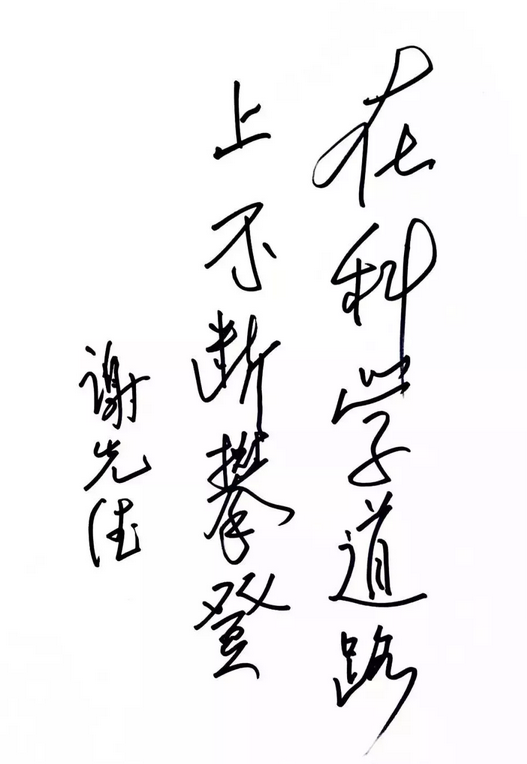 在科学道路
上不断攀登
谢先德